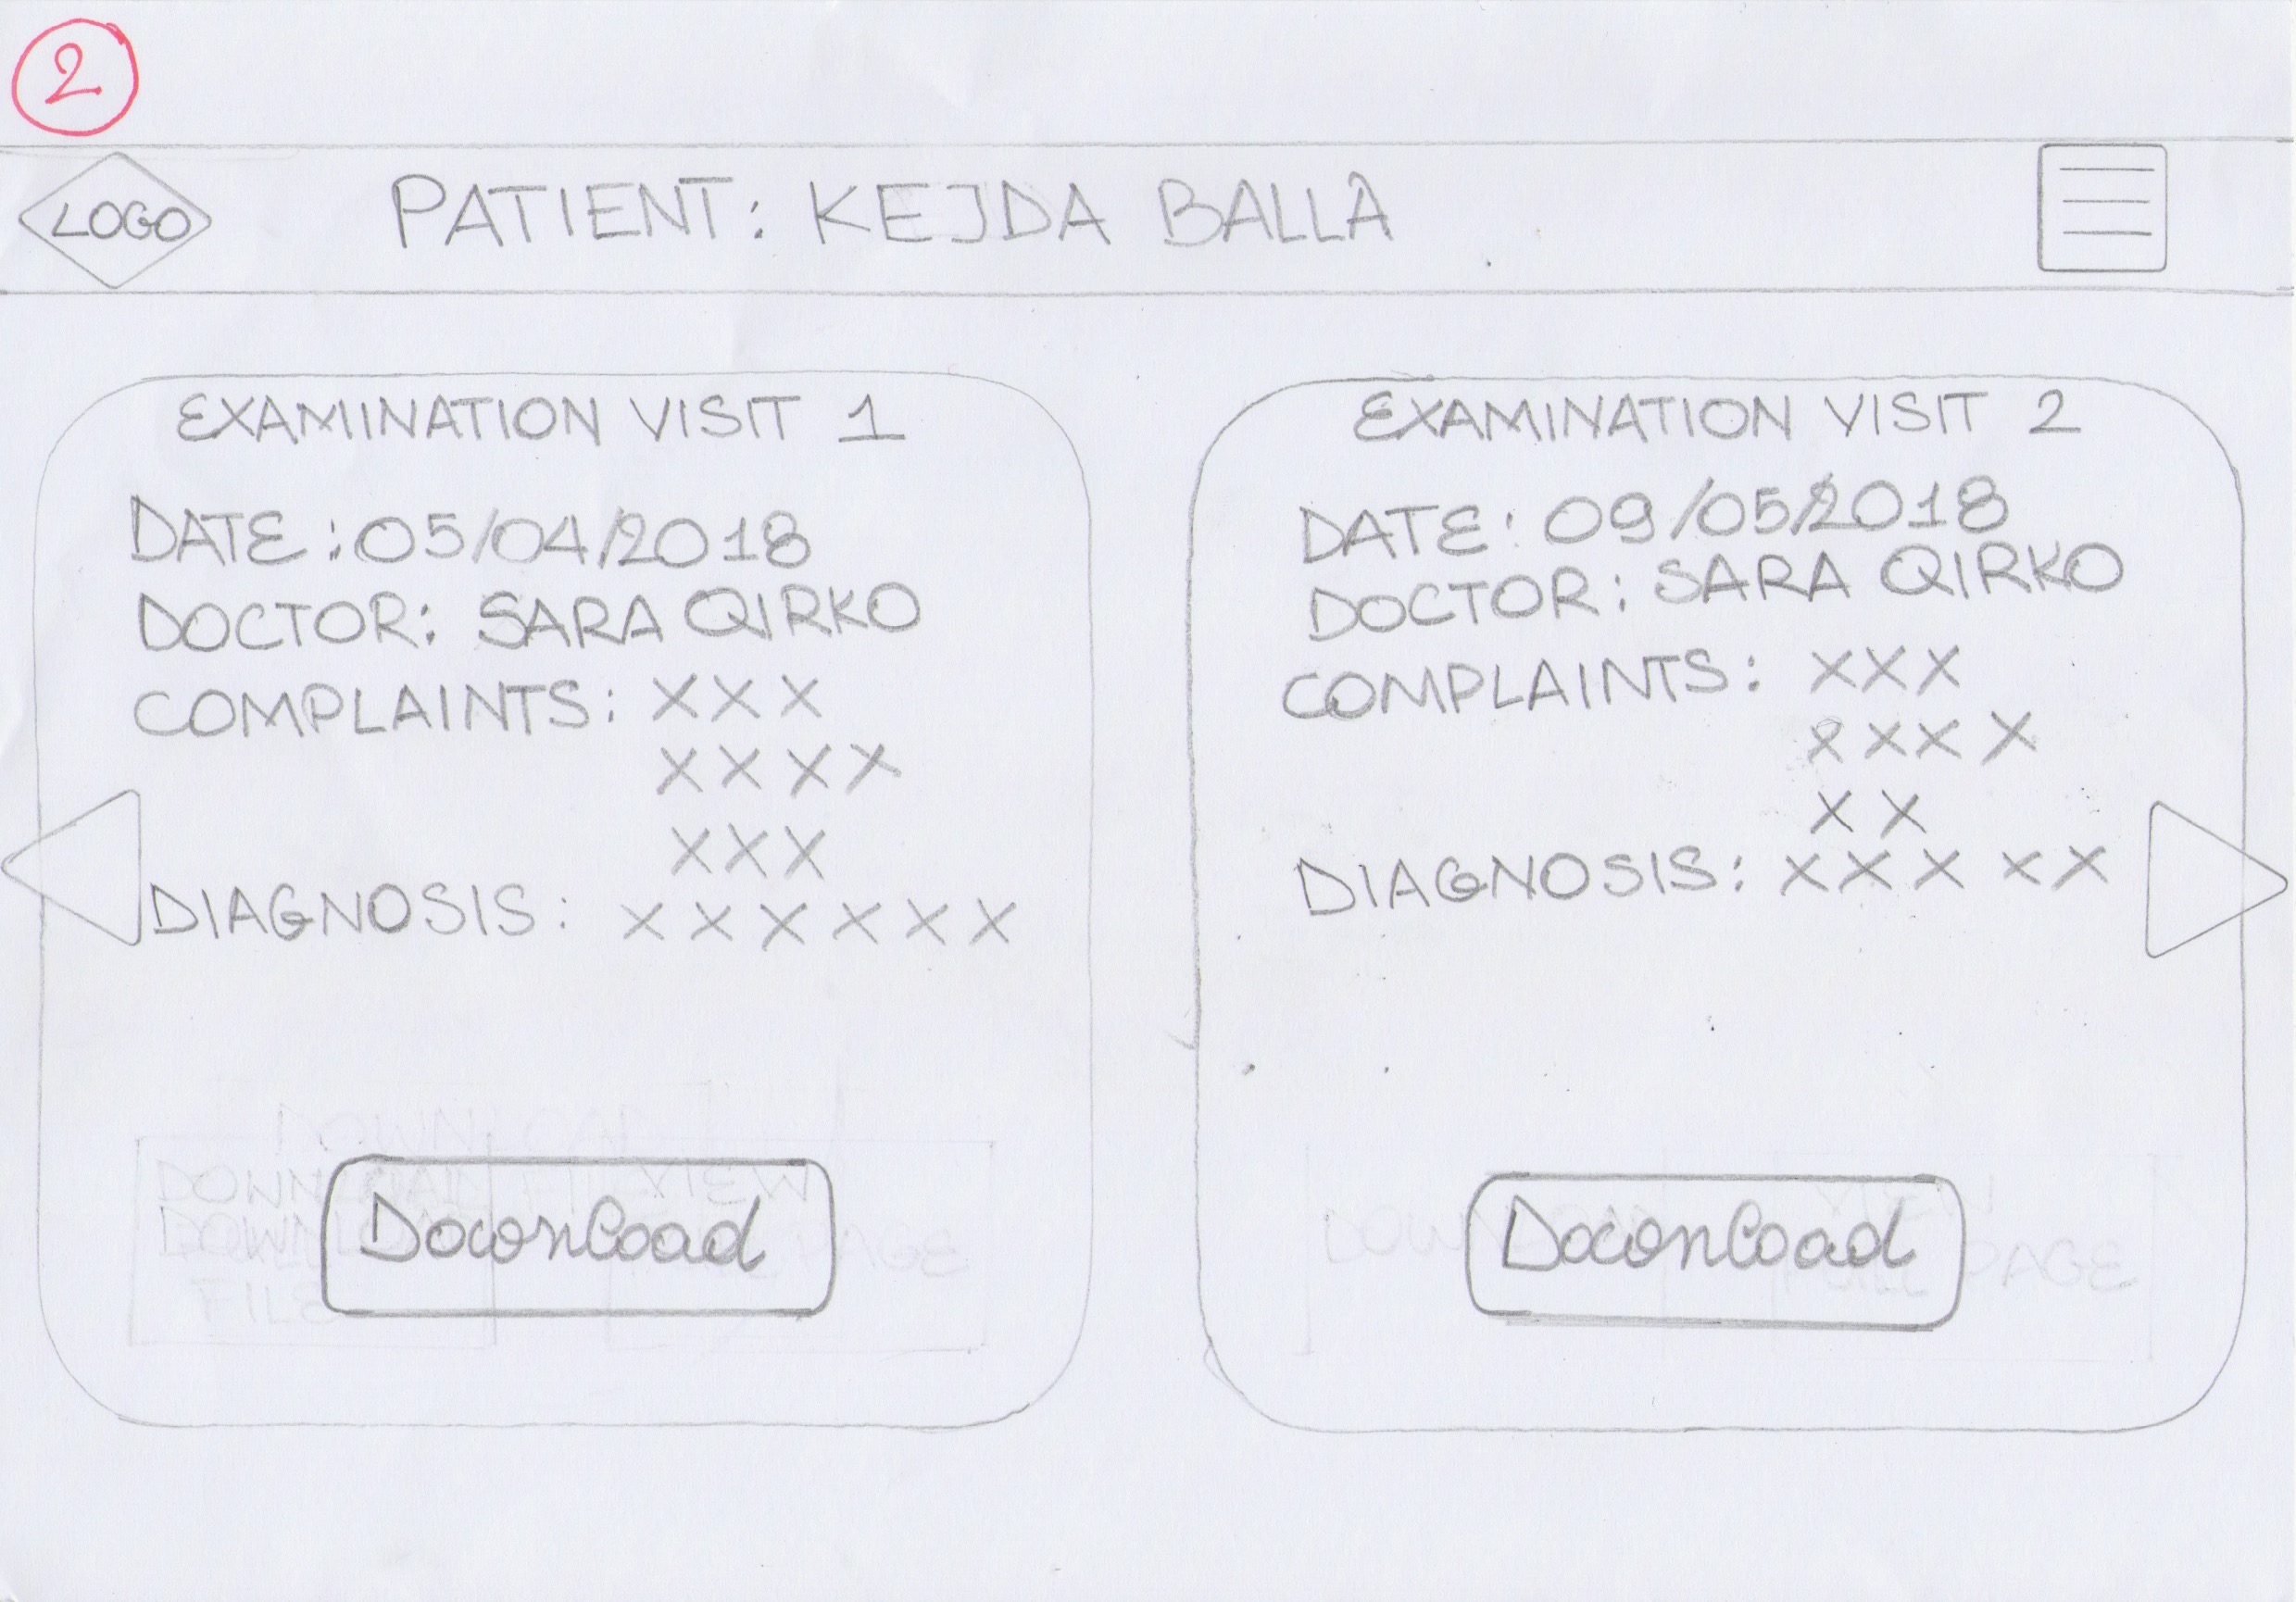 2
LOGO
PATIENT: KEJDA BALLA
EXAMINATION VISIT 1
DATE: 05/04/2018
DOCTOR: SARA QIRKO
COMPLAINTS: XXX
XXXX
XXX
DIAGNOSIS: XXXXXX
Download
EXAMINATION VISIT 2
DATE: 09/05/2018
DOCTOR: SARA QIRKO
COMPLAINTS: XXX
XXXX
XX
DIAGNOSIS: XXXXX
Download